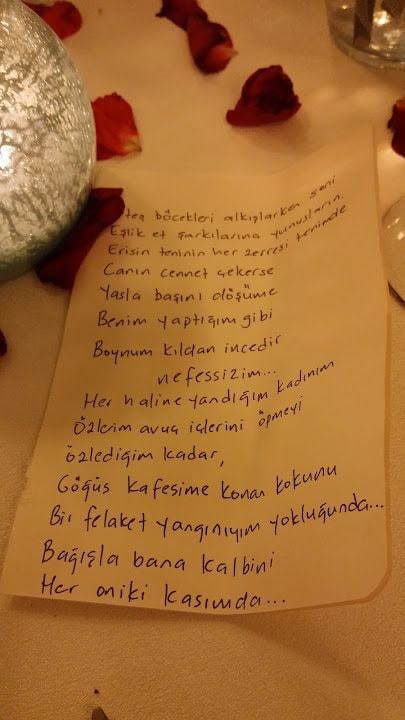 teş böcekleri alkışlarken seni
Eşlik et şarkılarına yunusların.
Erisin teninin her zerresi tenimde
Canın cennet çekerse
Yasla başını döşüme
Benim yaptığım gibi
Boynum kıldan incedir
nefessizim...
Her haline yandığım kadınım
Özlerim avuç içlerini öpmeyi
özlediğim kadar,
Göğüs kafesime konan kokunu
Bir felaket yangınıyım yokluğunda...
Bağışla bana kalbini
Her oniki kasımda...